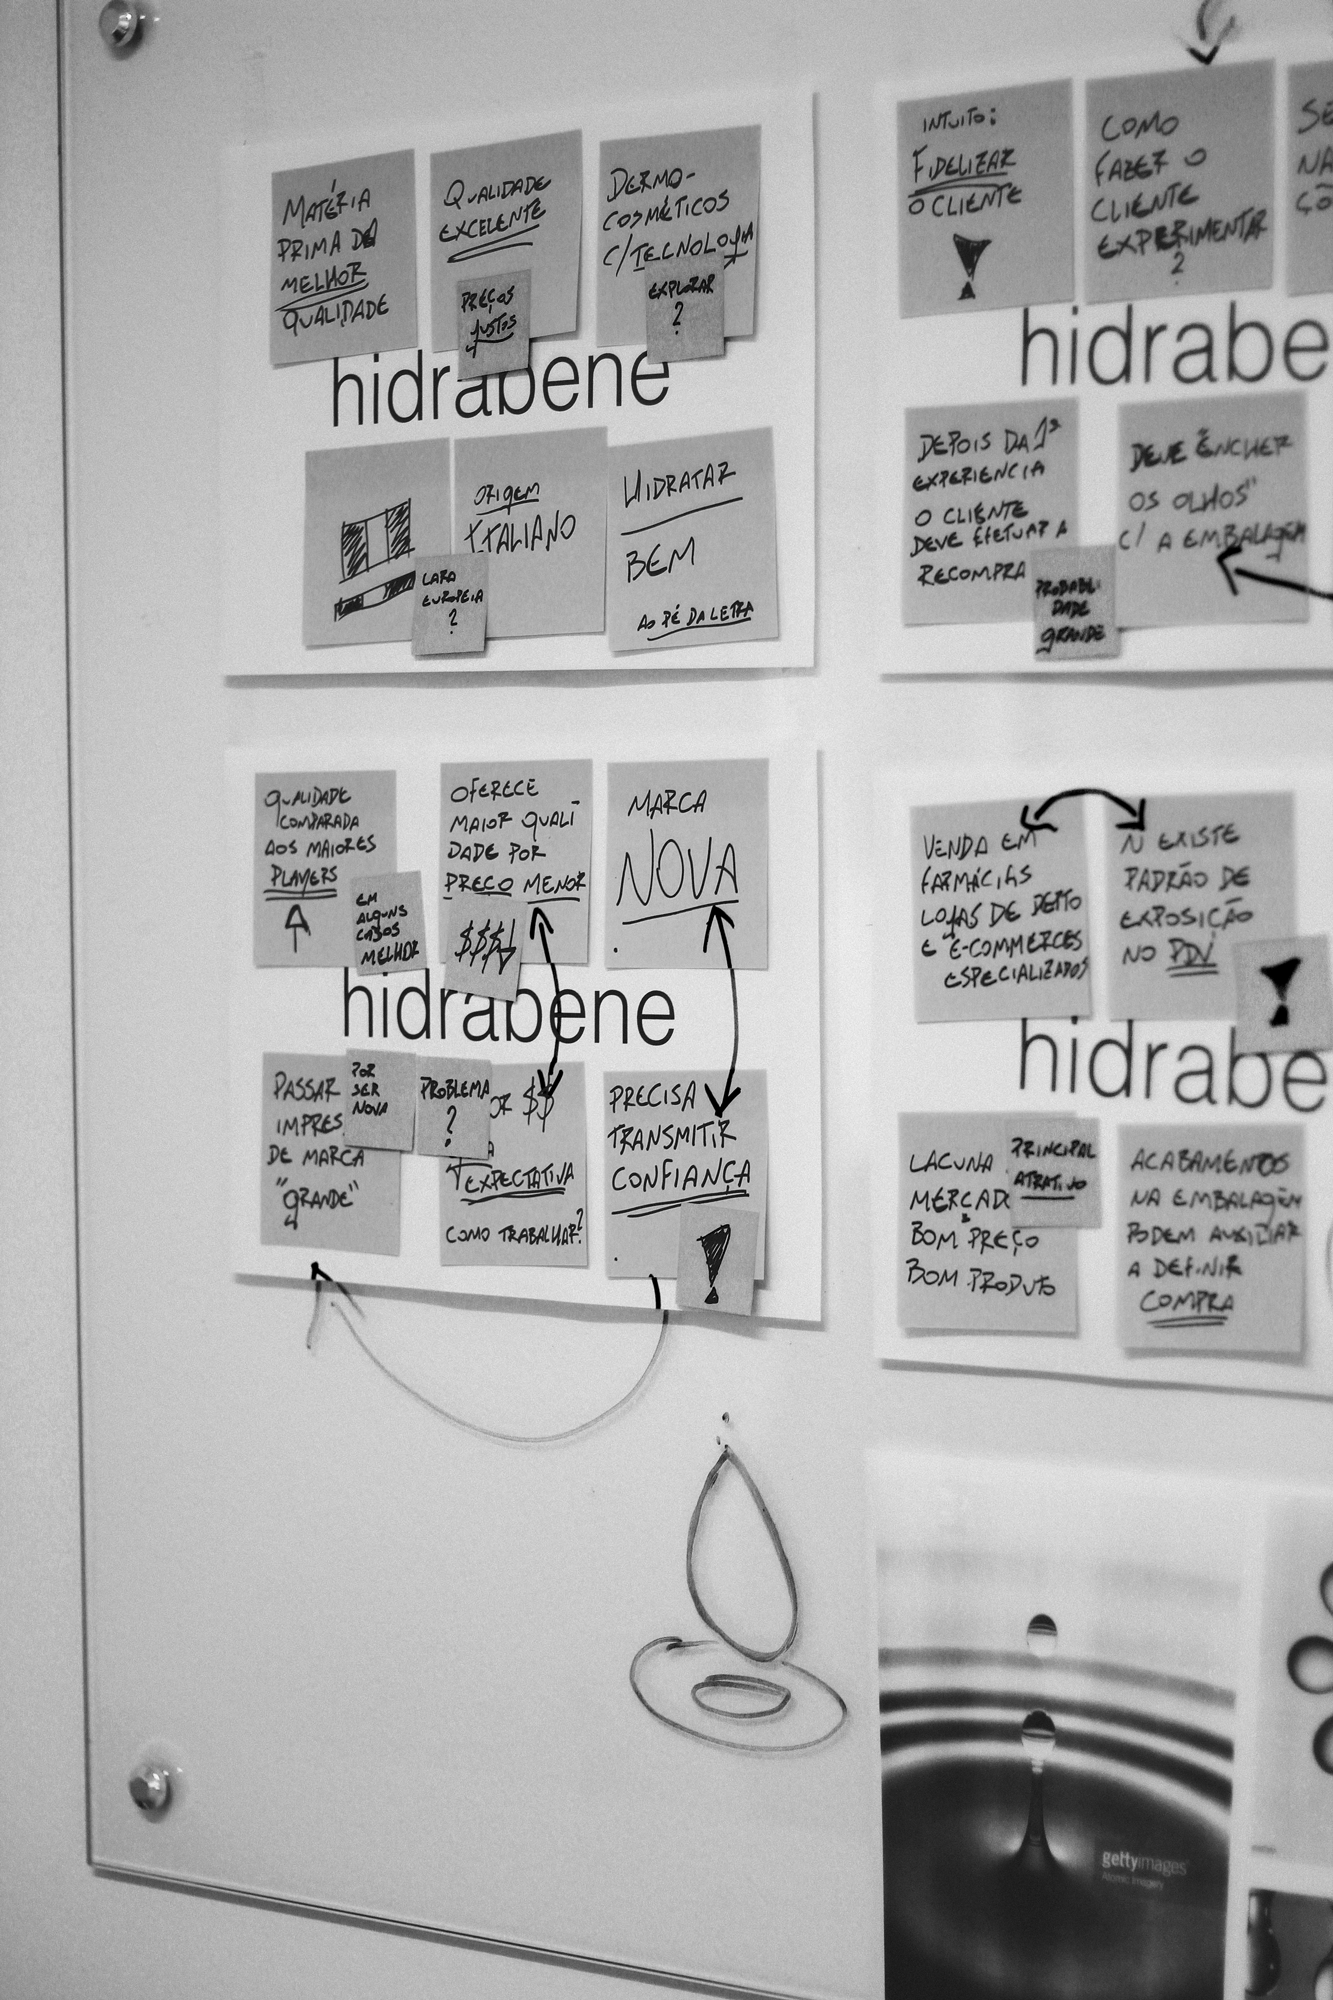 MATÉRIA
PRIMA DA
MELHOR
QUALIDADE
QUALIDADE
EXCELENTE
PREÇOS
JUSTOS
DERMO-
COSMÉTICOS
C/TECNOLOGIA
EXPLORAR
?
hidrabene
ORIGEM
ITALIANO
CARA
EUROPEIA
?
HIDRATAR
BEM
AO PÉ DA LETRA
INTUITO:
FIDELIZAR
O CLIENTE
!
COMO
FAZER O
CLIENTE
EXPERIMENTAR
?
SE
NA
ÇÕ
hidrabe
DEPOIS DA 1ª
EXPERIENCIA
O CLIENTE
DEVE EFETUAR A
RECOMPRA
PROBABILI-
DADE
GRANDE
DEVE "ENCHER
OS OLHOS"
C/ A EMBALAGEM
QUALIDADE
COMPARADA
AOS MAIORES
PLAYERS
EM
ALGUNS
CASOS
MELHOR
OFERECE
MAIOR QUALI
DADE POR
PREÇO MENOR
$$$
MARCA
NOVA
hidrabene
PASSAR
IMPRES
DE MARCA
"GRANDE"
POR
SER
NOVA
PROBLEMA
?
OR $$
A
EXPECTATIVA
COMO TRABALHAR?
PRECISA
TRANSMITIR
CONFIANÇA
!
VENDA EM
FARMÁCIAS
LOJAS DE DEPTO
E E-COMMERCES
ESPECIALIZADOS
Ñ EXISTE
PADRÃO DE
EXPOSIÇÃO
NO PDV
!
hidrabe
LACUNA
MERCADO
BOM PREÇO
BOM PRODUTO
PRINCIPAL
ATRATIVO
ACABAMENTOS
NA EMBALAGEM
PODEM AUXILIAR
A DEFINIR
COMPRA
gettyimages
Atomic Imagery